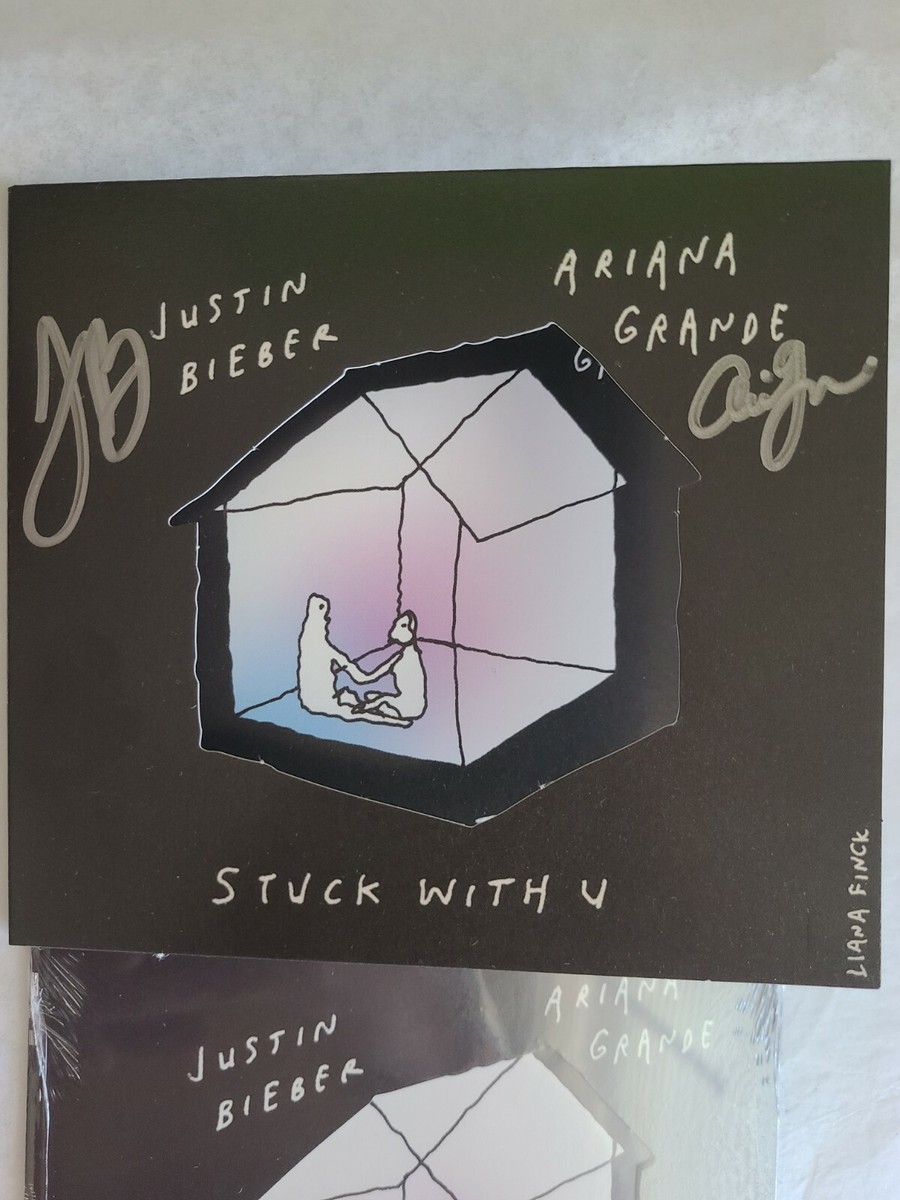 JUSTIN
BIEBER
ARIANA
GRANDE
JB
STUCK WITH U
LIANA FINCK
JUSTIN
BIEBER
ARIANA
GRANDE